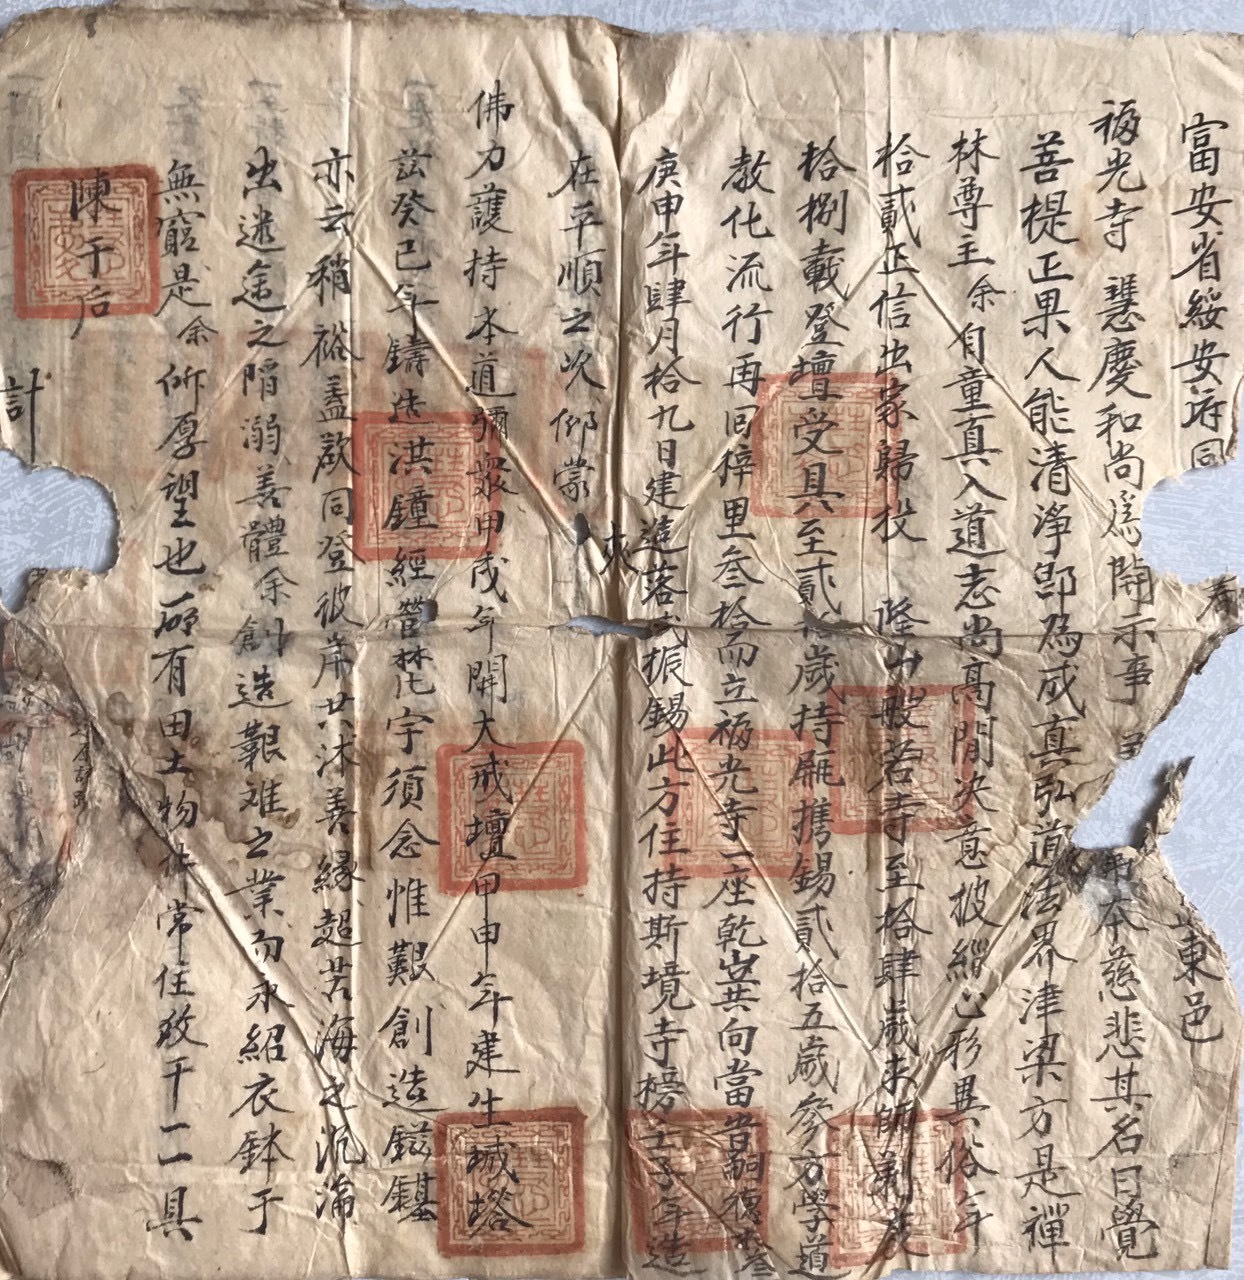 富安省綏安府同東邑
福光寺慧慶和尚爲開示事帝本慈悲其名曰覺
菩提正果人能清淨即爲成真弘道法界津梁方是禪
林尊主余自童真入道志尚高閒決意披緇心形異俗年
拾貳正信出家歸投 隆山般若寺至拾肆歲求師剃度
拾捌載登壇受具至貳歲持瓶携錫貳拾五歲參方學道
教化流行再回梓里叁拾而立福光寺一座乾巽向當嗣德叁
庚申年肆月拾九日建造落成振錫此方住持斯境寺榜壬子年造
在平順之次仰蒙
佛力護持本道彌衆甲戌年開大戒壇甲申年建生塔
茲癸巳年鑄造洪鐘經營梵宇須念惟艱創造鎡錤
亦云稍裕蓋欲同登彼岸廿沐善緣超苦海之沉淪
出迷途之陷溺善體余創造艱難之業而永紹衣鉢于
無窮是余所厚望也所有田土物件常住致干一一具
陳于后
計